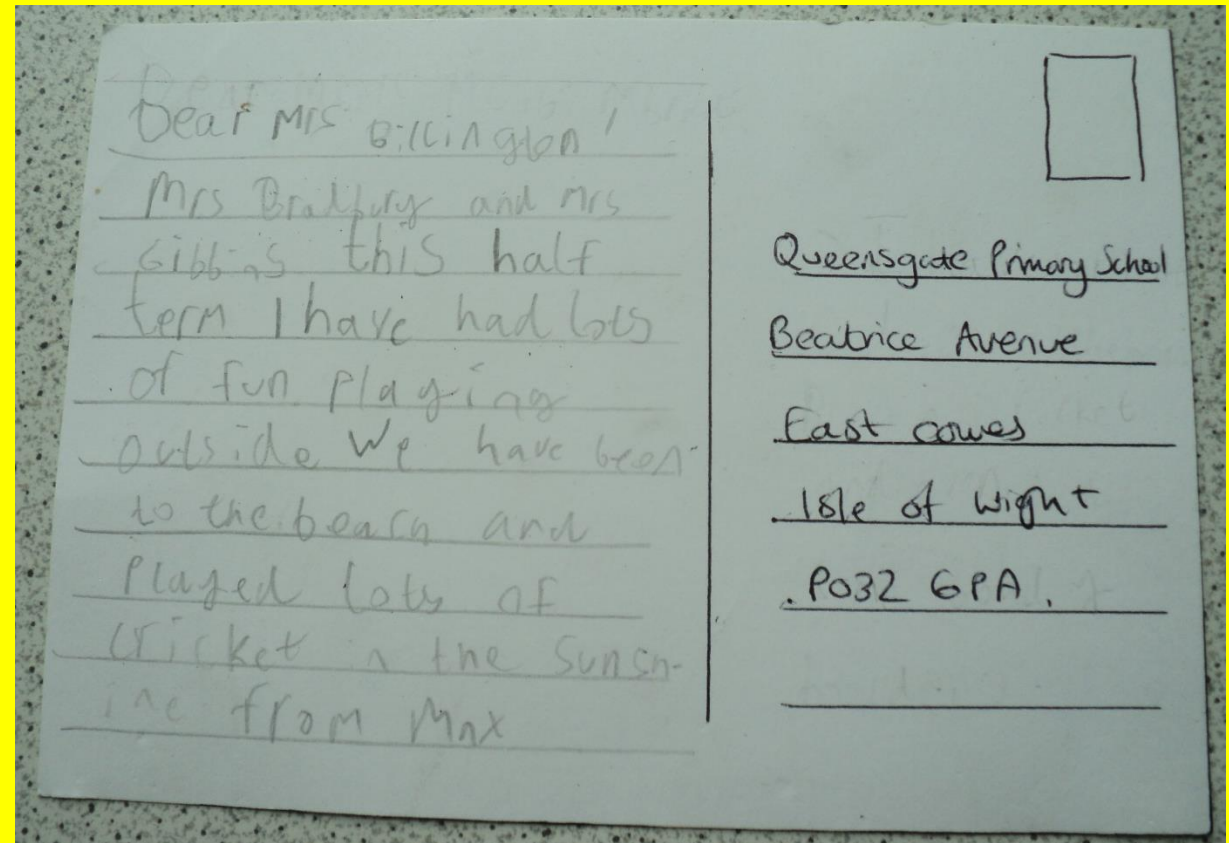 Dear Mrs Billington,
Mrs Bradbury and Mrs
Gibbins this half
term I have had lots
of fun playing
outside We have been
to the beach and
Played lots of
cricket in the Sunsh-
ine from Max
Queensgate Primary School
Beatrice Avenue
East cowes
Isle of wight
PO32 6PA.